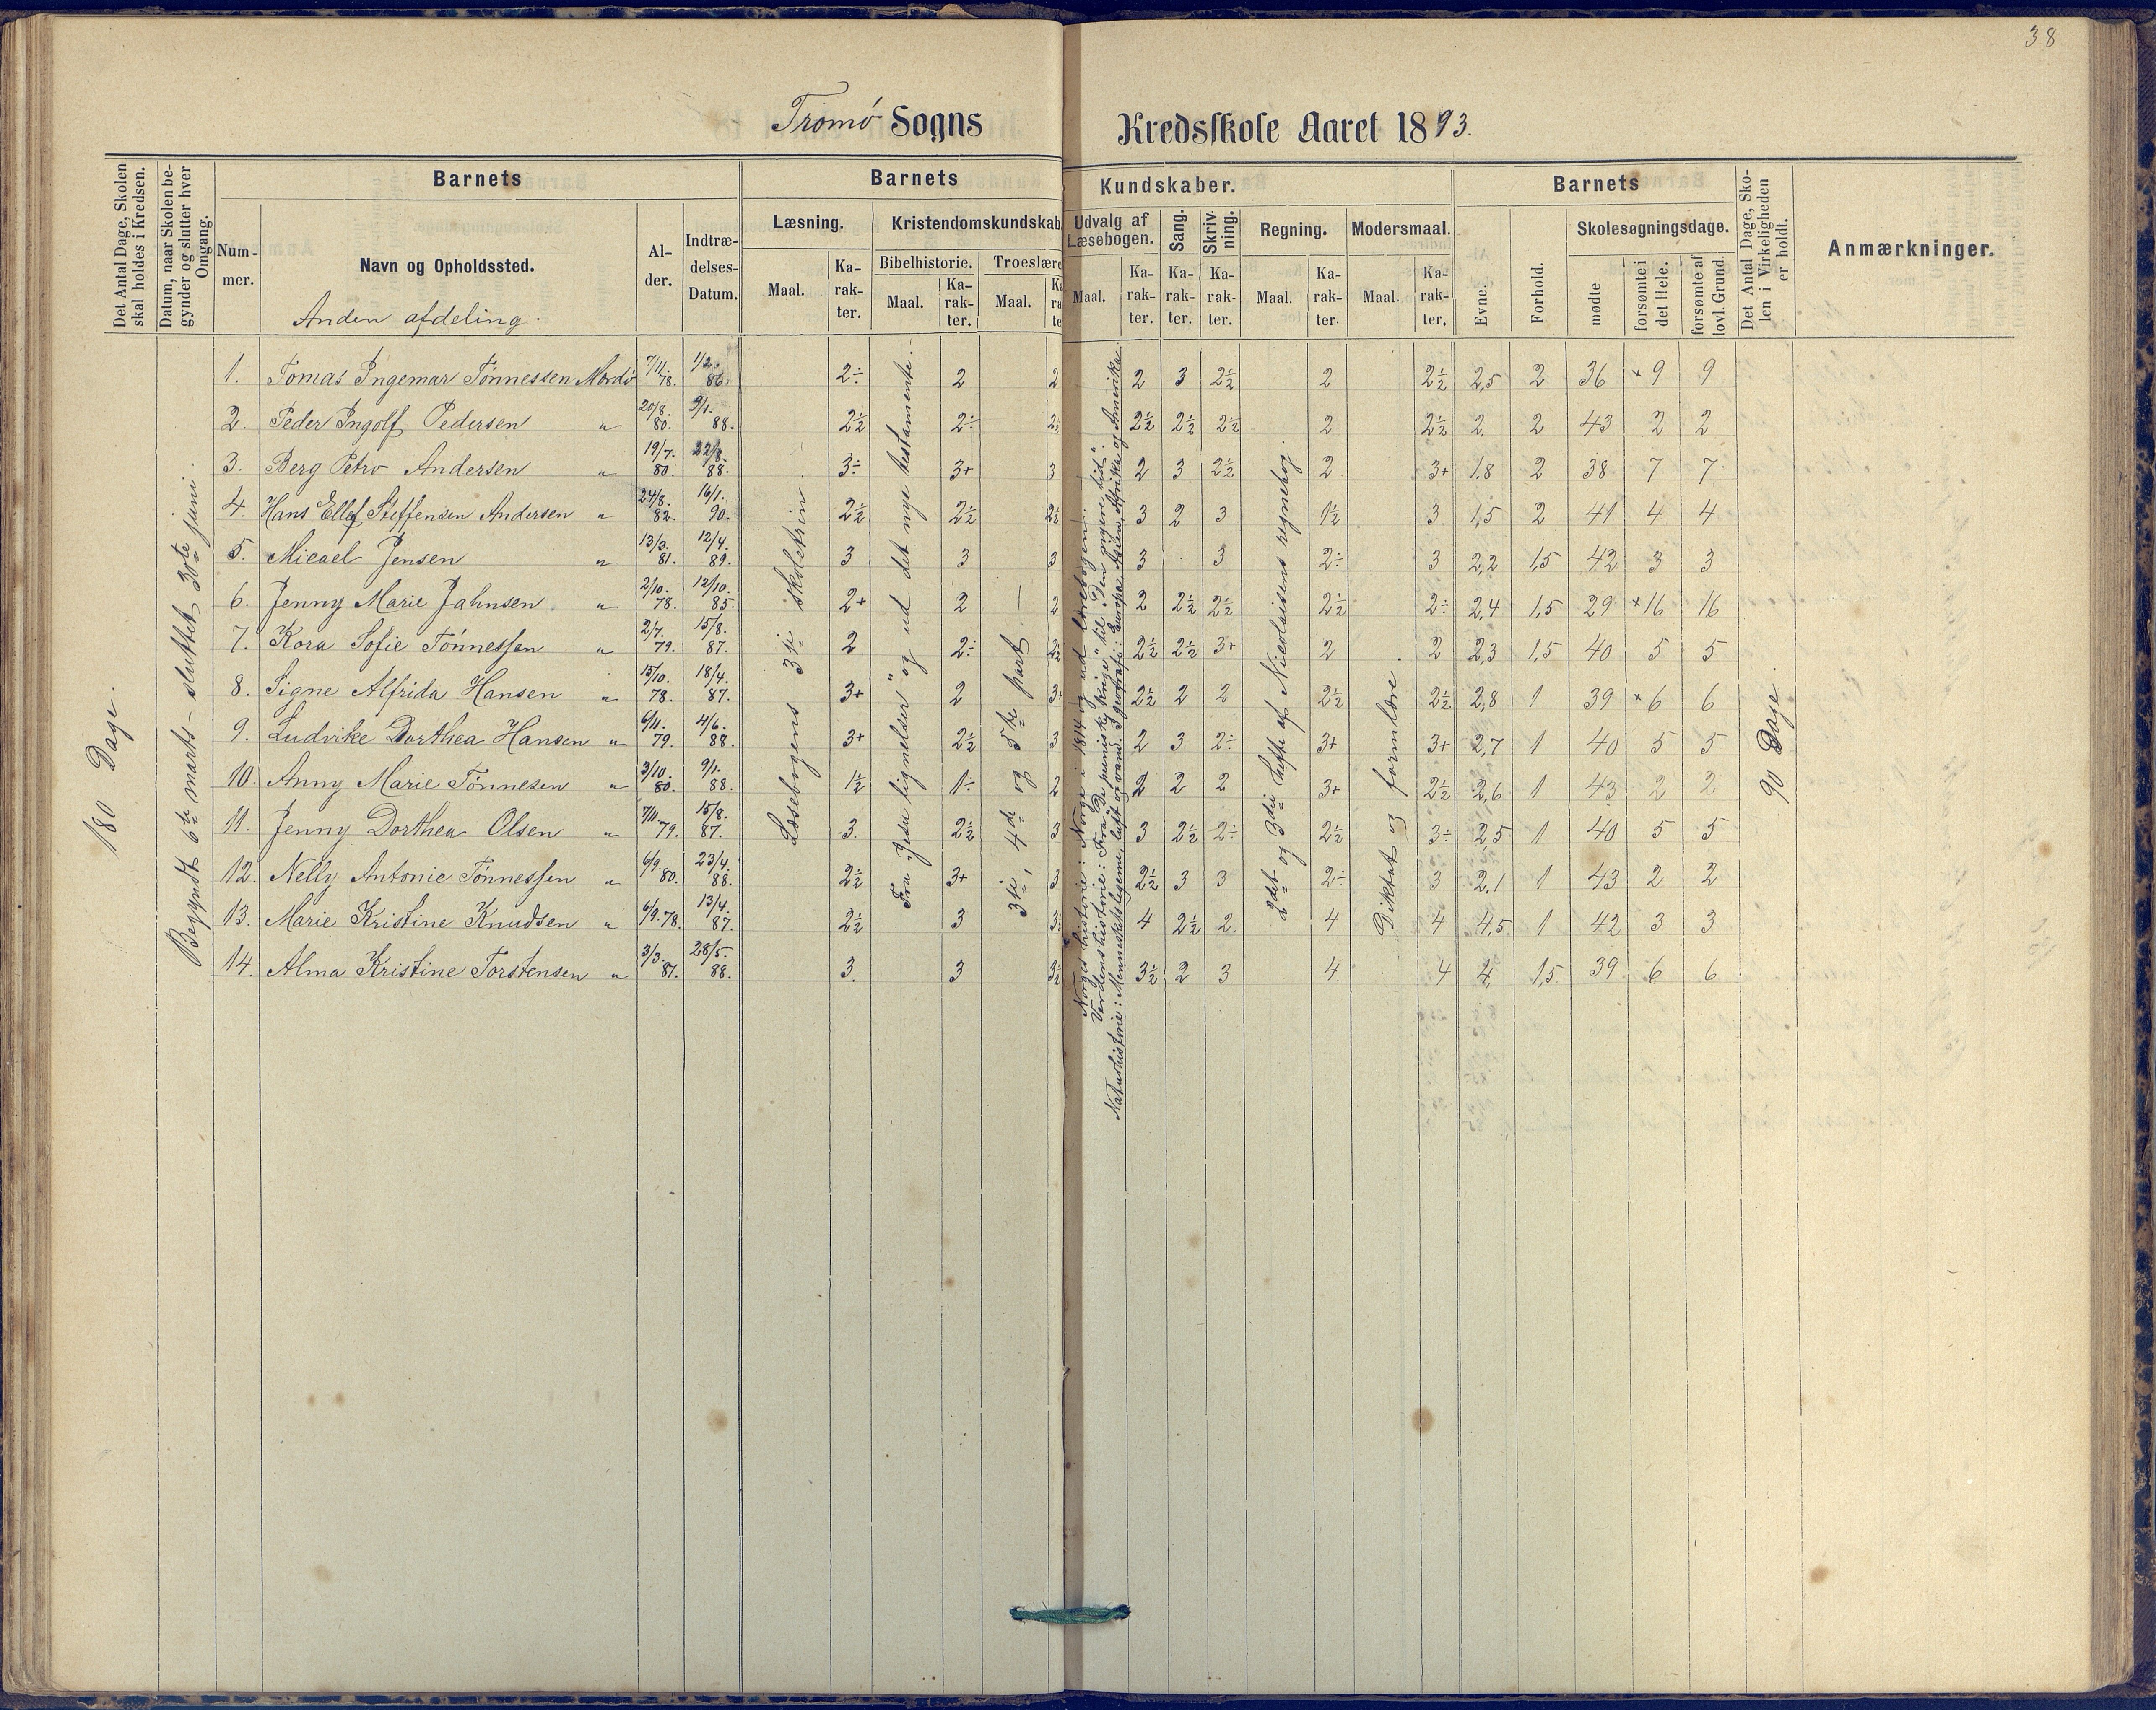 38
Tromø Sogns Kredsskole Aaret 1893.
Det Antal Dage, Skolen skal holdes i Kredsen.
Datum, naar Skolen begynder og slutter hver Omgang.
Barnets
Barnets Kundskaber.
Barnets
Det Antal Dage, Skolen i Virkeligheden er holdt.
Anmærkninger.
Nummer.
Navn og Opholdssted.
Alder.
Indtrædelses-Datum.
Læsning.
Kristendomskundskab
Udvalg af Læsebogen.
Sang.
Skrivning.
Regning.
Modersmaal.
Evne.
Forhold.
Skolesøgningsdage.
Bibelhistorie.
Troeslære
Maal.
Karakter.
Maal.
Karakter.
Maal.
Maal.
Karakter.
Karakter.
Karakter.
Maal.
Karakter.
Maal.
Karakter.
mødte
forsømte i det Hele.
forsømte af lovl. Grund.
Anden afdeling.
180 Dage.
Begyndt 6te marts - sluttet 30te juni.
Læsebogens 3die skoletrin.
Fra "Jesu lignelser" og ud det nye testamente.
3die, 4de og 5te part.
Norges historie: Norge i 1814 og ud læsebogen.
Verdenshistorie: Fra "De puniske krige" til "Den nyere tid".
Naturhistorie: Menneskelegeme, luft og vand. I geografi: Europa, Asien, Afrika og Amerika.
2det og 3die hefte af Nicolaisens regnebog.
Diktat og formlære.
90 Dage.
1. Tomas Ingemar Tønnessen Mærdø 7/11. 78. 1/2. 86. 2÷ 2 2 2 3 2½ 2 2½ 2,5 2 36 × 9 9
2. Peder Ingolf Pedersen " 20/8. 80. 9/1. 88. 2½ 2÷ 2½ 2½ 2½ 2 2½ 2 2 43 2 2
3. Berg Petro Andersen " 19/7. 80. 22/8. 88. 3÷ 3+ 3 2 3 2½ 2 3+ 1.8 2 38 7 7
4. Hans Ellef Steffensen Andersen " 24/8. 82. 16/1. 90. 2½ 2½ 2½ 3 2 3 1½ 3 1,5 2 41 4 4
5. Micael Jensen " 13/3. 81. 12/4. 89. 3 3 3 3 3 2÷ 3 2,2 1,5 42 3 3
6. Jenny Marie Jahnsen " 2/10. 78. 12/10. 85. 2+ 2 2 2 2½ 2½ 2½ 2÷ 2,4 1,5 29 × 16 16
7. Kora Sofie Tønnessen " 2/7. 79. 15/8. 87. 2 2÷ 2½ 2½ 2½ 3+ 2 2 2,3 1,5 40 5 5
8. Signe Alfrida Hansen " 15/10. 78. 18/4. 87. 3+ 2 3+ 2½ 2 2 2½ 2½ 2,8 1 39 × 6 6
9. Ludvike Dorthea Hansen " 6/11. 79. 4/6. 88. 3+ 2½ 3 2 3 2÷ 3+ 3+ 2,7 1 40 5 5
10. Anny Marie Tønnesen " 3/10. 80. 9/1. 88. 1½ 1÷ 2 2 2 2 3+ 2½ 2,6 1 43 2 2
11. Jenny Dorthea Olsen " 7/11. 79. 15/8. 87. 3. 2½ 3 3 2½ 2÷ 2½ 3÷ 2,5 1 40 5 5
12. Nelly Antonie Tønnessen " 6/9. 80. 23/4. 88. 2½ 3+ 3 2½ 3 3 2÷ 3 2,1 1 43 2 2
13. Marie Kristine Knudsen " 6/9. 78. 13/4. 87. 2½ 3 3÷ 4 2½ 2. 4 4 4,5 1 42 3 3
14. Alma Kristine Torstensen " 3/3. 81. 28/5. 88. 3. 3 3½ 3½ 2 3 4 4 4 1,5 39 6 6